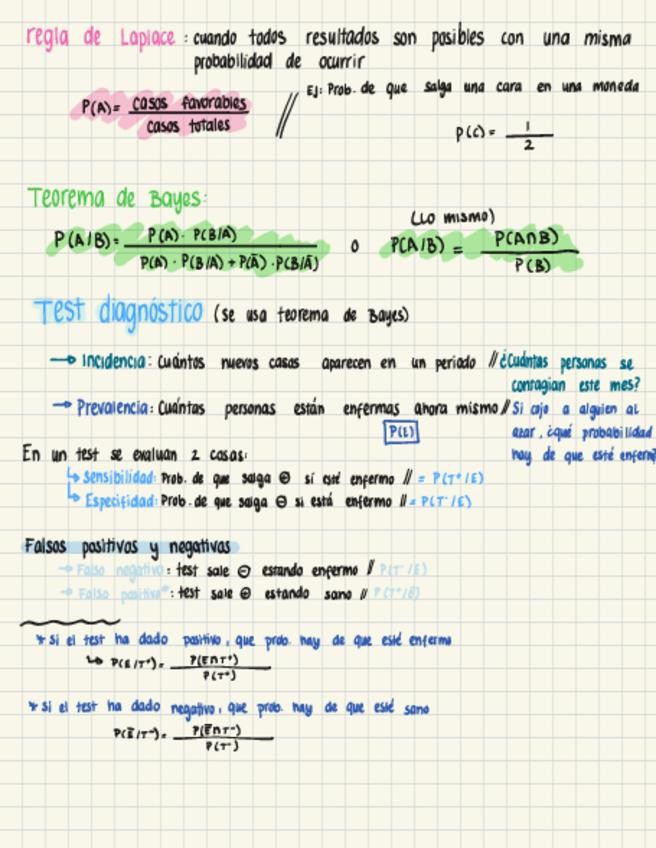 regla de Laplace : cuando todos resultados son posibles con una misma
probabilidad de ocurrir
P(A)= casos favorables / casos totales // EJ: Prob. de que salga una cara en una moneda
P(C) = 1 / 2
Teorema de Bayes:
(lo mismo)
P(A/B)= P(A) · P(B/A) / P(A) · P(B/A) + P(Ā) · P(B/Ā) o P(A/B) = P(A∩B) / P(B)
Test diagnóstico (se usa teorema de Bayes)
→ Incidencia: Cuántos nuevos casos aparecen en un periodo // ¿Cuántas personas se
contagian este mes?
→ Prevalencia: Cuántas personas están enfermas ahora mismo // Si cojo a alguien al
P(E) azar, ¿qué probabilidad
hay de que esté
En un test se evaluan 2 cosas:
↳ Sensibilidad: Prob. de que salga ⊕ si esté enfermo // = P(T⁺/E)
↳ Especifidad: Prob. de que salga ⊖ si está enfermo // = P(T⁻/E)
Falsos positivos y negativos
→ Falso negativo: test sale ⊖ estando enfermo // P(T⁻/E)
→ Falso positivo: test sale ⊕ estando sano // P(T⁺/Ē)
* Si el test ha dado positivo, que prob. hay de que esté enfermo
↳ P(E/T⁺)= P(E∩T⁺) / P(T⁺)
* Si el test ha dado negativo, que prob. hay de que esté sano
P(Ē/T⁻)= P(Ē∩T⁻) / P(T⁻)